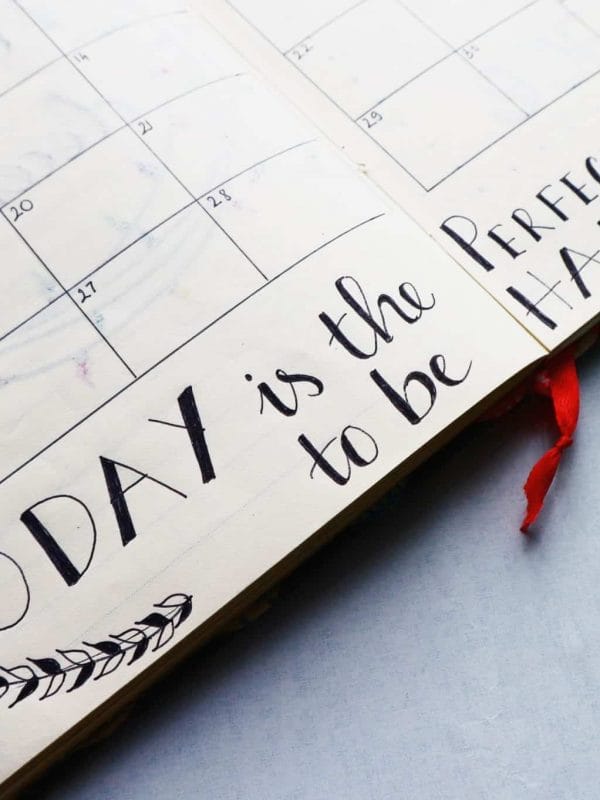 14
20 21
27 28
ODAY is the
to be
22
29 30
PERFEC
HA